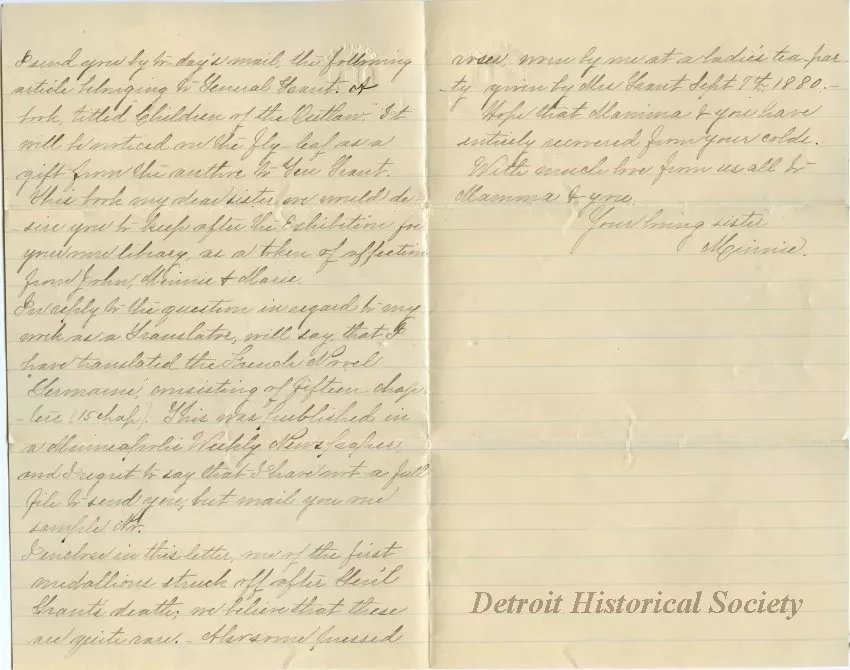 I send you by to-day's mail, the following
article belonging to General Grant. A
book, titled "Children of the Outlaw." It
will be noticed on the fly-leaf as a
gift from the author to Gen Grant.
This book my dear sister, we would de-
sire you to keep after the Exhibition for
your own library, as a token of affection
from John, Minnie & Marie.
In reply to the question in regard to my
work as a Translator, will say, that I
have translated the French Novel
"Germaine", consisting of fifteen chap-
-ters (15 chap). This was published in
a Minneapolis Weekly News paper,
and I regret to say that I have not a full
file to send you, but mail you one
sample No.
I enclose in this letter, one of the first
medallions struck off after Gen'l
Grant's death; we believe that these
are quite rare. - Also some pressed
roses, worn by me at a ladies tea-par
-ty given by Mrs Grant Sept 7th 1880. -
Hope that Mamma & you have
entirely recovered from your colds.
With much love from us all to
Mamma & you,
Your loving sister
Minnie.
Detroit Historical Society